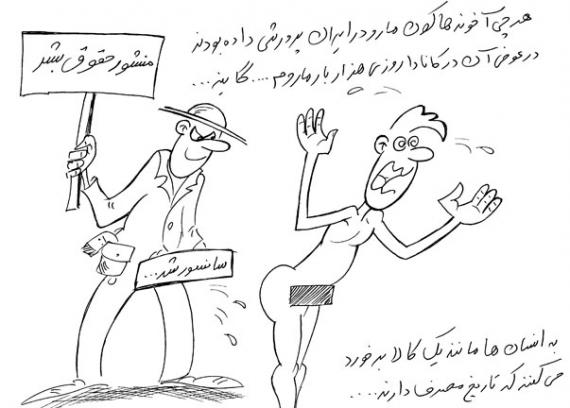 هر چی آخوندها کون مارو در ایران پرورش داده بودند
در عوض آن در کانادا روزی هزار بار مارو م.... گاین...
منشور حقوق بشر
سانسور شد...
به انسان ها مانند یک کالا برخورد
می کنند که تاریخ مصرف دارند....